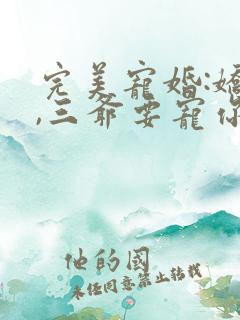 完美寵婚:嬌
,三爺要寵你
他的國
未经同意禁止转载